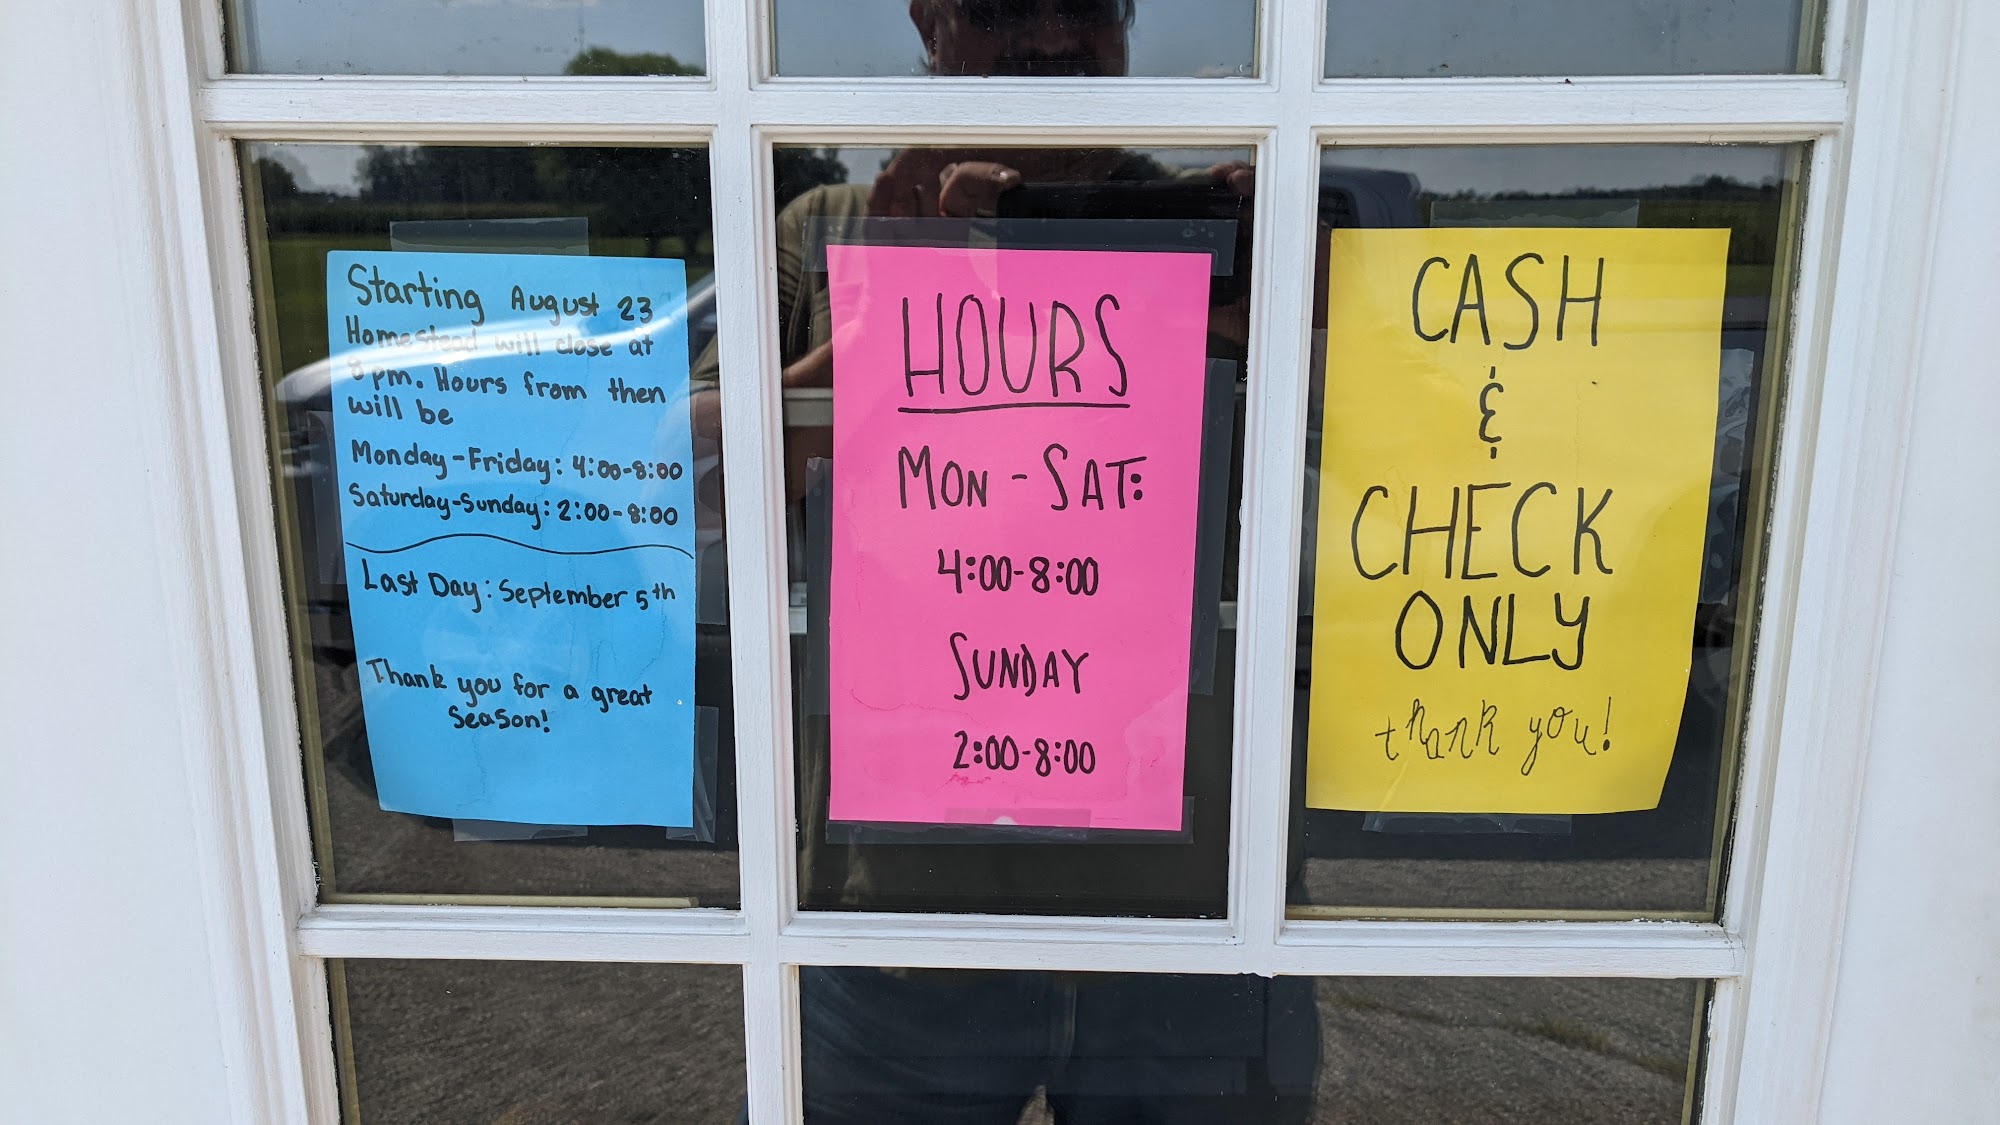 Starting August 23
Homestead will close at
8 pm. Hours from then
will be
Monday-Friday: 4:00-8:00
Saturday-Sunday: 2:00-8:00
Last Day: September 5th
Thank you for a great
season!
HOURS
MON - SAT:
4:00-8:00
SUNDAY
2:00-8:00
CASH
&
CHECK
ONLY
thank you!